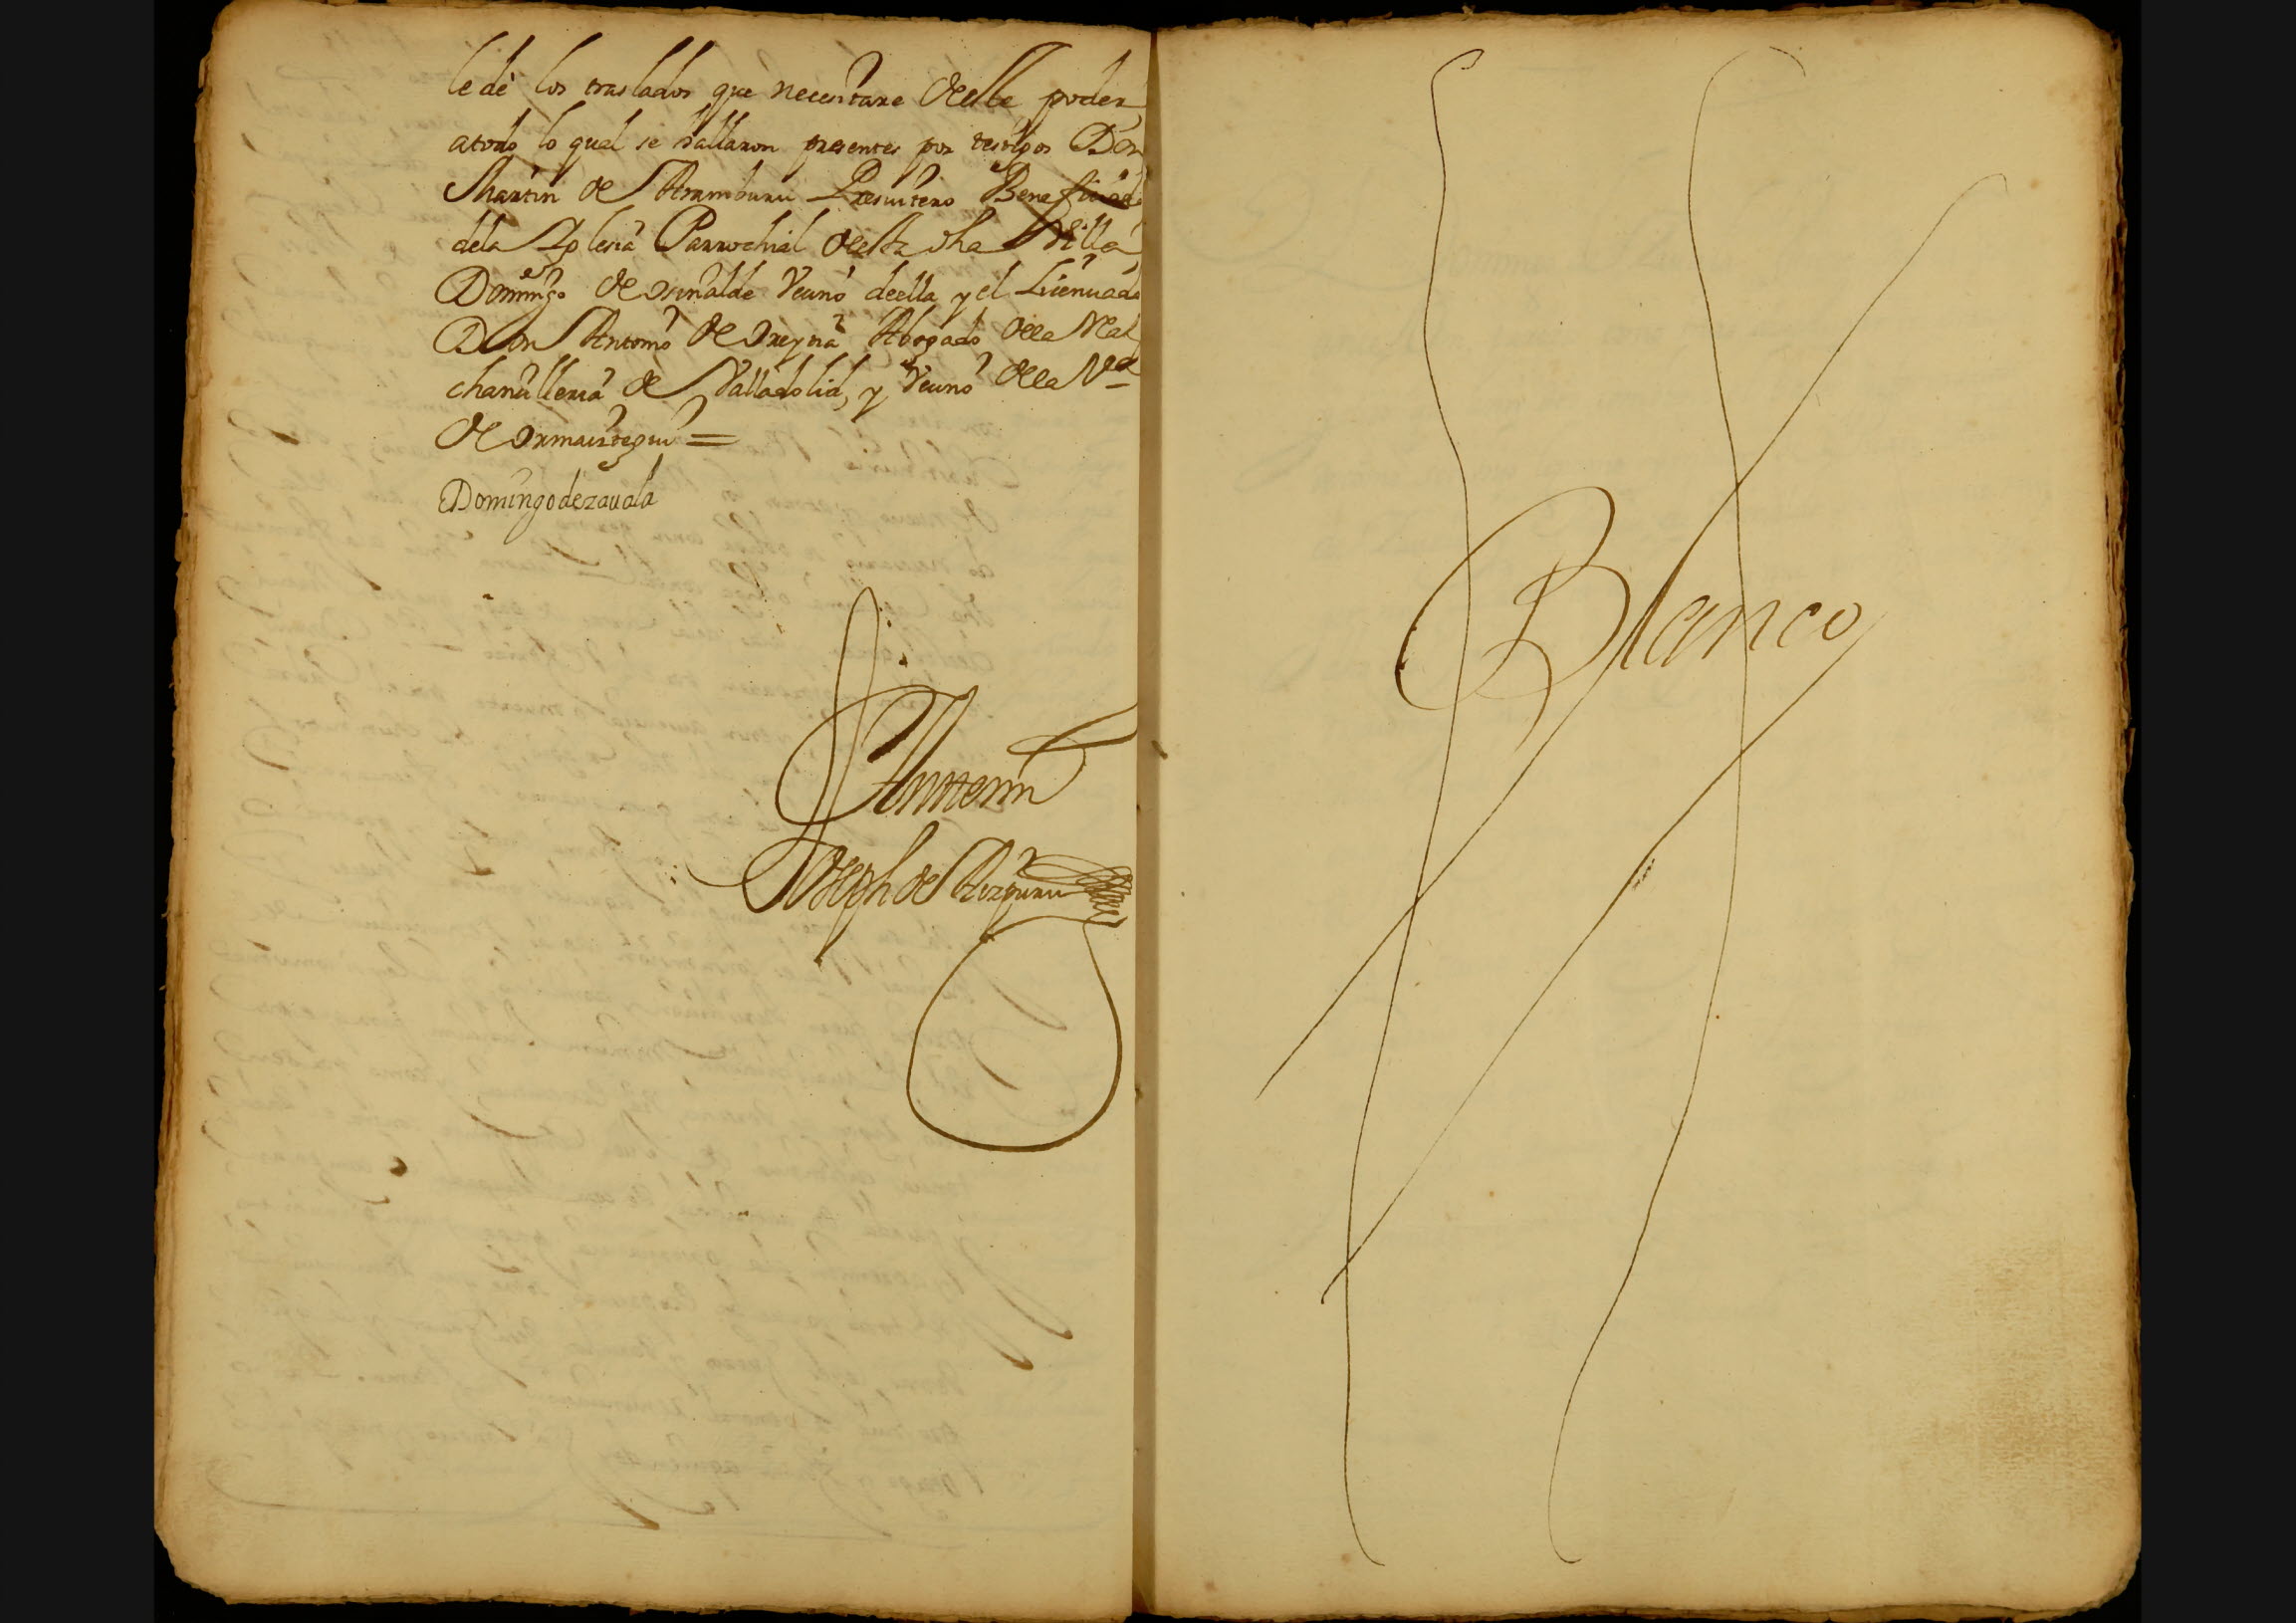 le dè los traslados que necesitare deste poder
a todo lo qual se hallaron presentes por testigos Don
Martin de Aramburu Presvitero Beneficiado
dela Iglesia Parrochial desta dha Villa
Domingo de Osinalde Vecino de ella y el Licenciado
Don Antonio de Oreytia Abogado dela Real
chancilleria de Valladolid, y Vecino dela Va
de Ormaiztegui =
Domingo de zauala
Antemi
Joseph de Aizpuru
Blanco